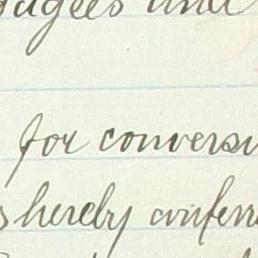 gagees and
for conversi
s hereby conferre